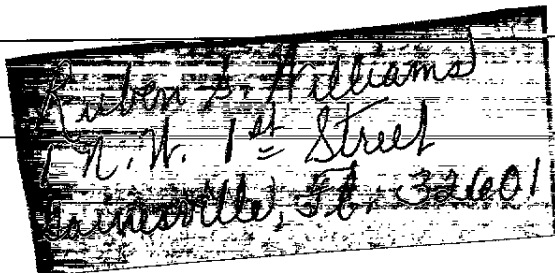 Ruben S. Williams
N. W. 1st Street
Gainesville, Fl. 32601